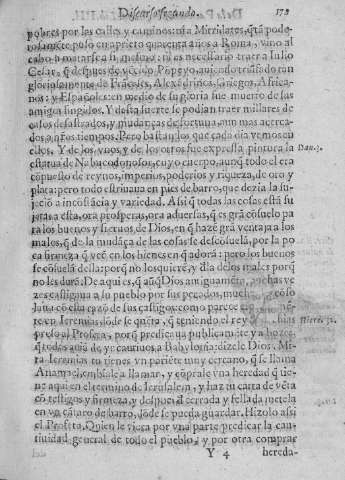 Discurso segundo. 173
pobres por las calles y caminos: ni a Mitridates, q̃ tã pode-
rosamẽte puso en aprieto quarenta años a Roma, vino al
cabo a matarse a si mesmo: ni es necessario traer a Iulio
Cesar, q̃ despues de vẽcido Põpeyo, auiendo triũfado tan
gloriosamente de Frãceses, Alexãdrinos, Griegos, Africa-
nos: y Españoles: en medio de su gloria fue muerto de sus
amigos fingidos. Y desta suerte se podian traer millares de
casos desastrados, y mudãças de fortuna, aun mas acerca-
dos a ños tiempos. Pero bastan los que cada dia vemos en
ellos. Y de los vnos, y de los otros fue expressa pintura la
estatua de Nabucodonosor, cuyo cuerpo, aunq̃ todo el era
cõpuesto de reynos, imperios, poderios y riqueza, de oro y
plata: pero todo estriuaua en pies de barro, que dezia la su-
jeciõ a incõstãcia y variedad. Assi q̃ todas las cosas estã su
jetas a esta, ora prosperas, ora aduersas, q̃ es grã cõsuelo pa
ra los buenos y sieruos de Dios, en q̃ hazẽ grã ventaja a los
malos, q̃ de la mudãça de las cosas se descõsuelã, por la po
ca firmeza q̃ veẽ en los bienes en q̃ adorã: pero los buenos
se cõsuelã della: porq̃ no los quierẽ, y d̃la de los males porq̃
no les durẽ. De aqui es, q̃ aũq̃ Dios antiguamẽte, muchas ve
zes castigaua a su pueblo por sus pecados,
Dan. 2.
en Ieremias, dõde se cuẽta, q̃ teniendo el rey
Hiere. 32.
preso al Profeta, porq̃ predicaua publicamẽte y a bozes,
q̃ todos auiã de yr cautiuos a Babylonia, dizele Dios. Mi-
ra Ieremias tu tienes vn pariẽte muy cercano, q̃ se llama
Anameel, embiale a llamar, y cõprale vna heredad q̃ tie-
ne aqui en el termino de Ierusalem, y haz tu carta de vẽta
cõ testigos y firmeza, y despues d̃ cerrada y sellada metela
en vn cãtaro de barro, dõde se pueda guardar. Hizolo assi
el Profeta. Quien le viera por vna parte predicar la cau-
tiuidad general de todo el pueblo, y por otra comprar
Y 4 hereda-